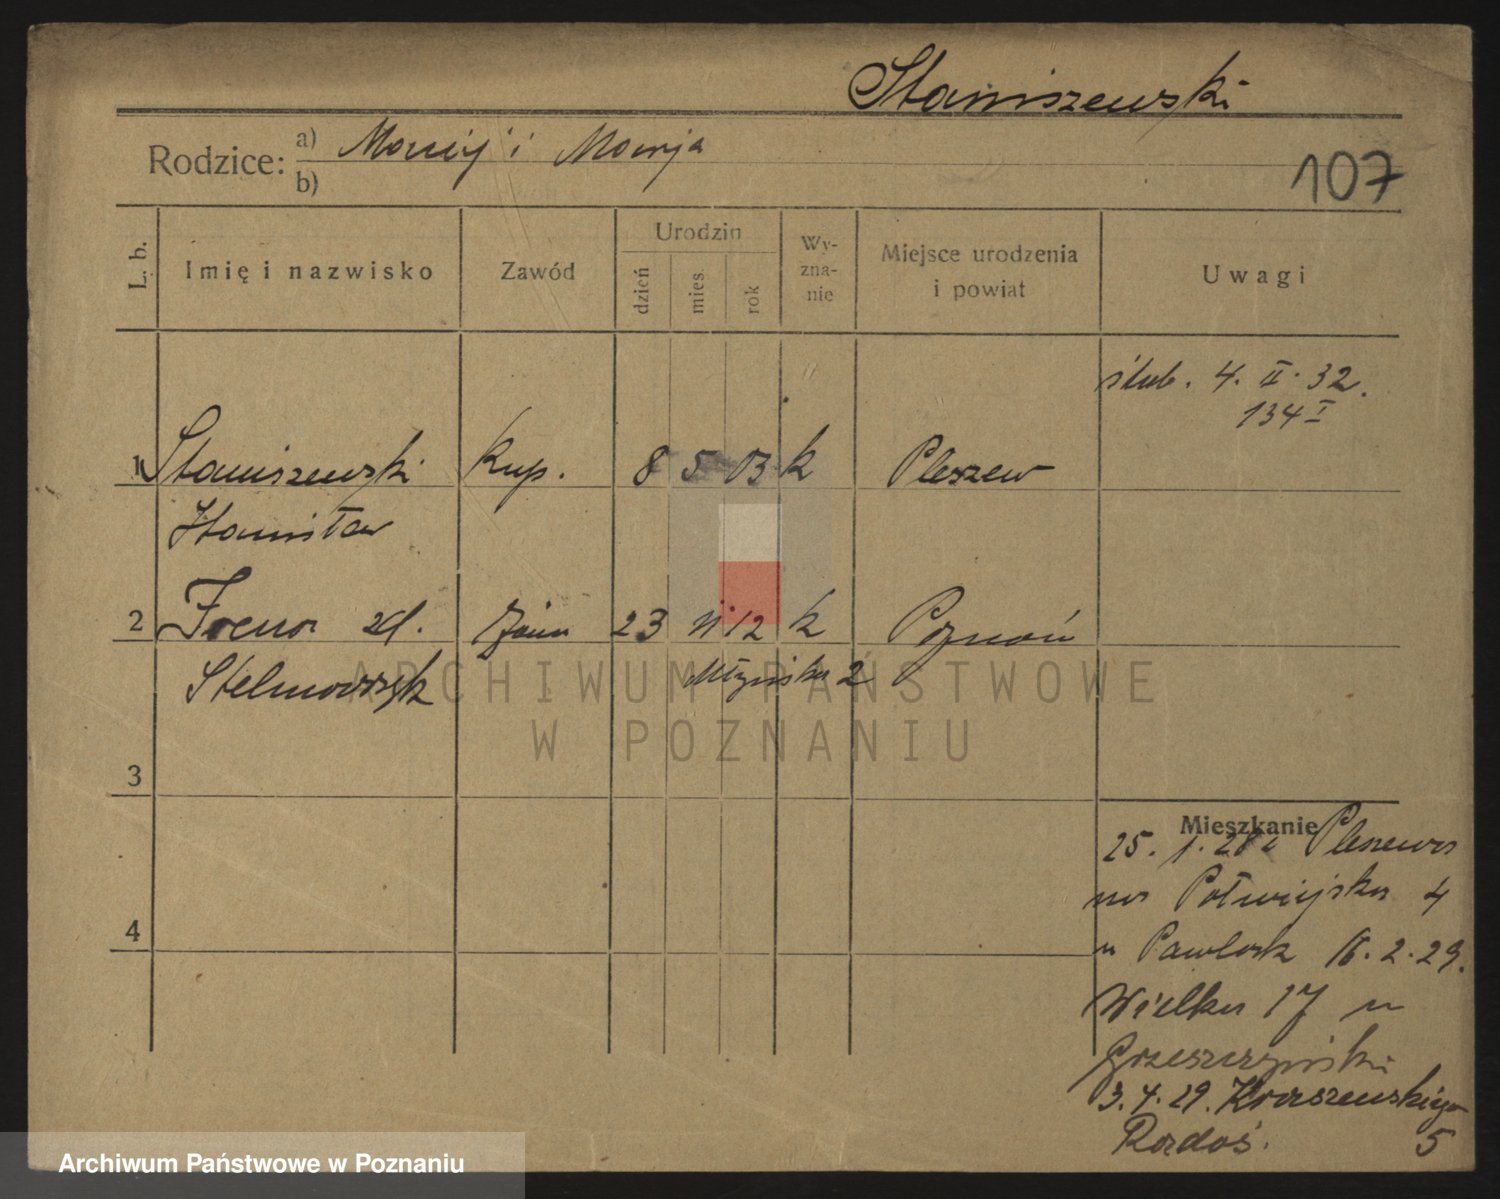 Staniszewski
Rodzice: a) Maciej i Marja
b)
107
L. b.
Imię i nazwisko
Zawód
Urodzin
dzień
mies.
rok
Wy-
zna-
nie
Miejsce urodzenia
i powiat
Uwagi
ślub. 4. II. 32.
134 I
1 Staniszewski kup. 8 5 03 k Pleszew
Stanisław
2 Irena zd. żona 23 12 k Poznań
Stelmaszyk Młyńska 2
3
4
Mieszkanie
25. 1. 28 z Pleszewa
na Półwiejska 4
u Pawlak 2. 29.
Wielka 17 u
Grzeszczyński
3. 4. 29. Kraszewskiego
5
ARCHIWUM PAŃSTWOWE
W POZNANIU
Archiwum Państwowe w Poznaniu